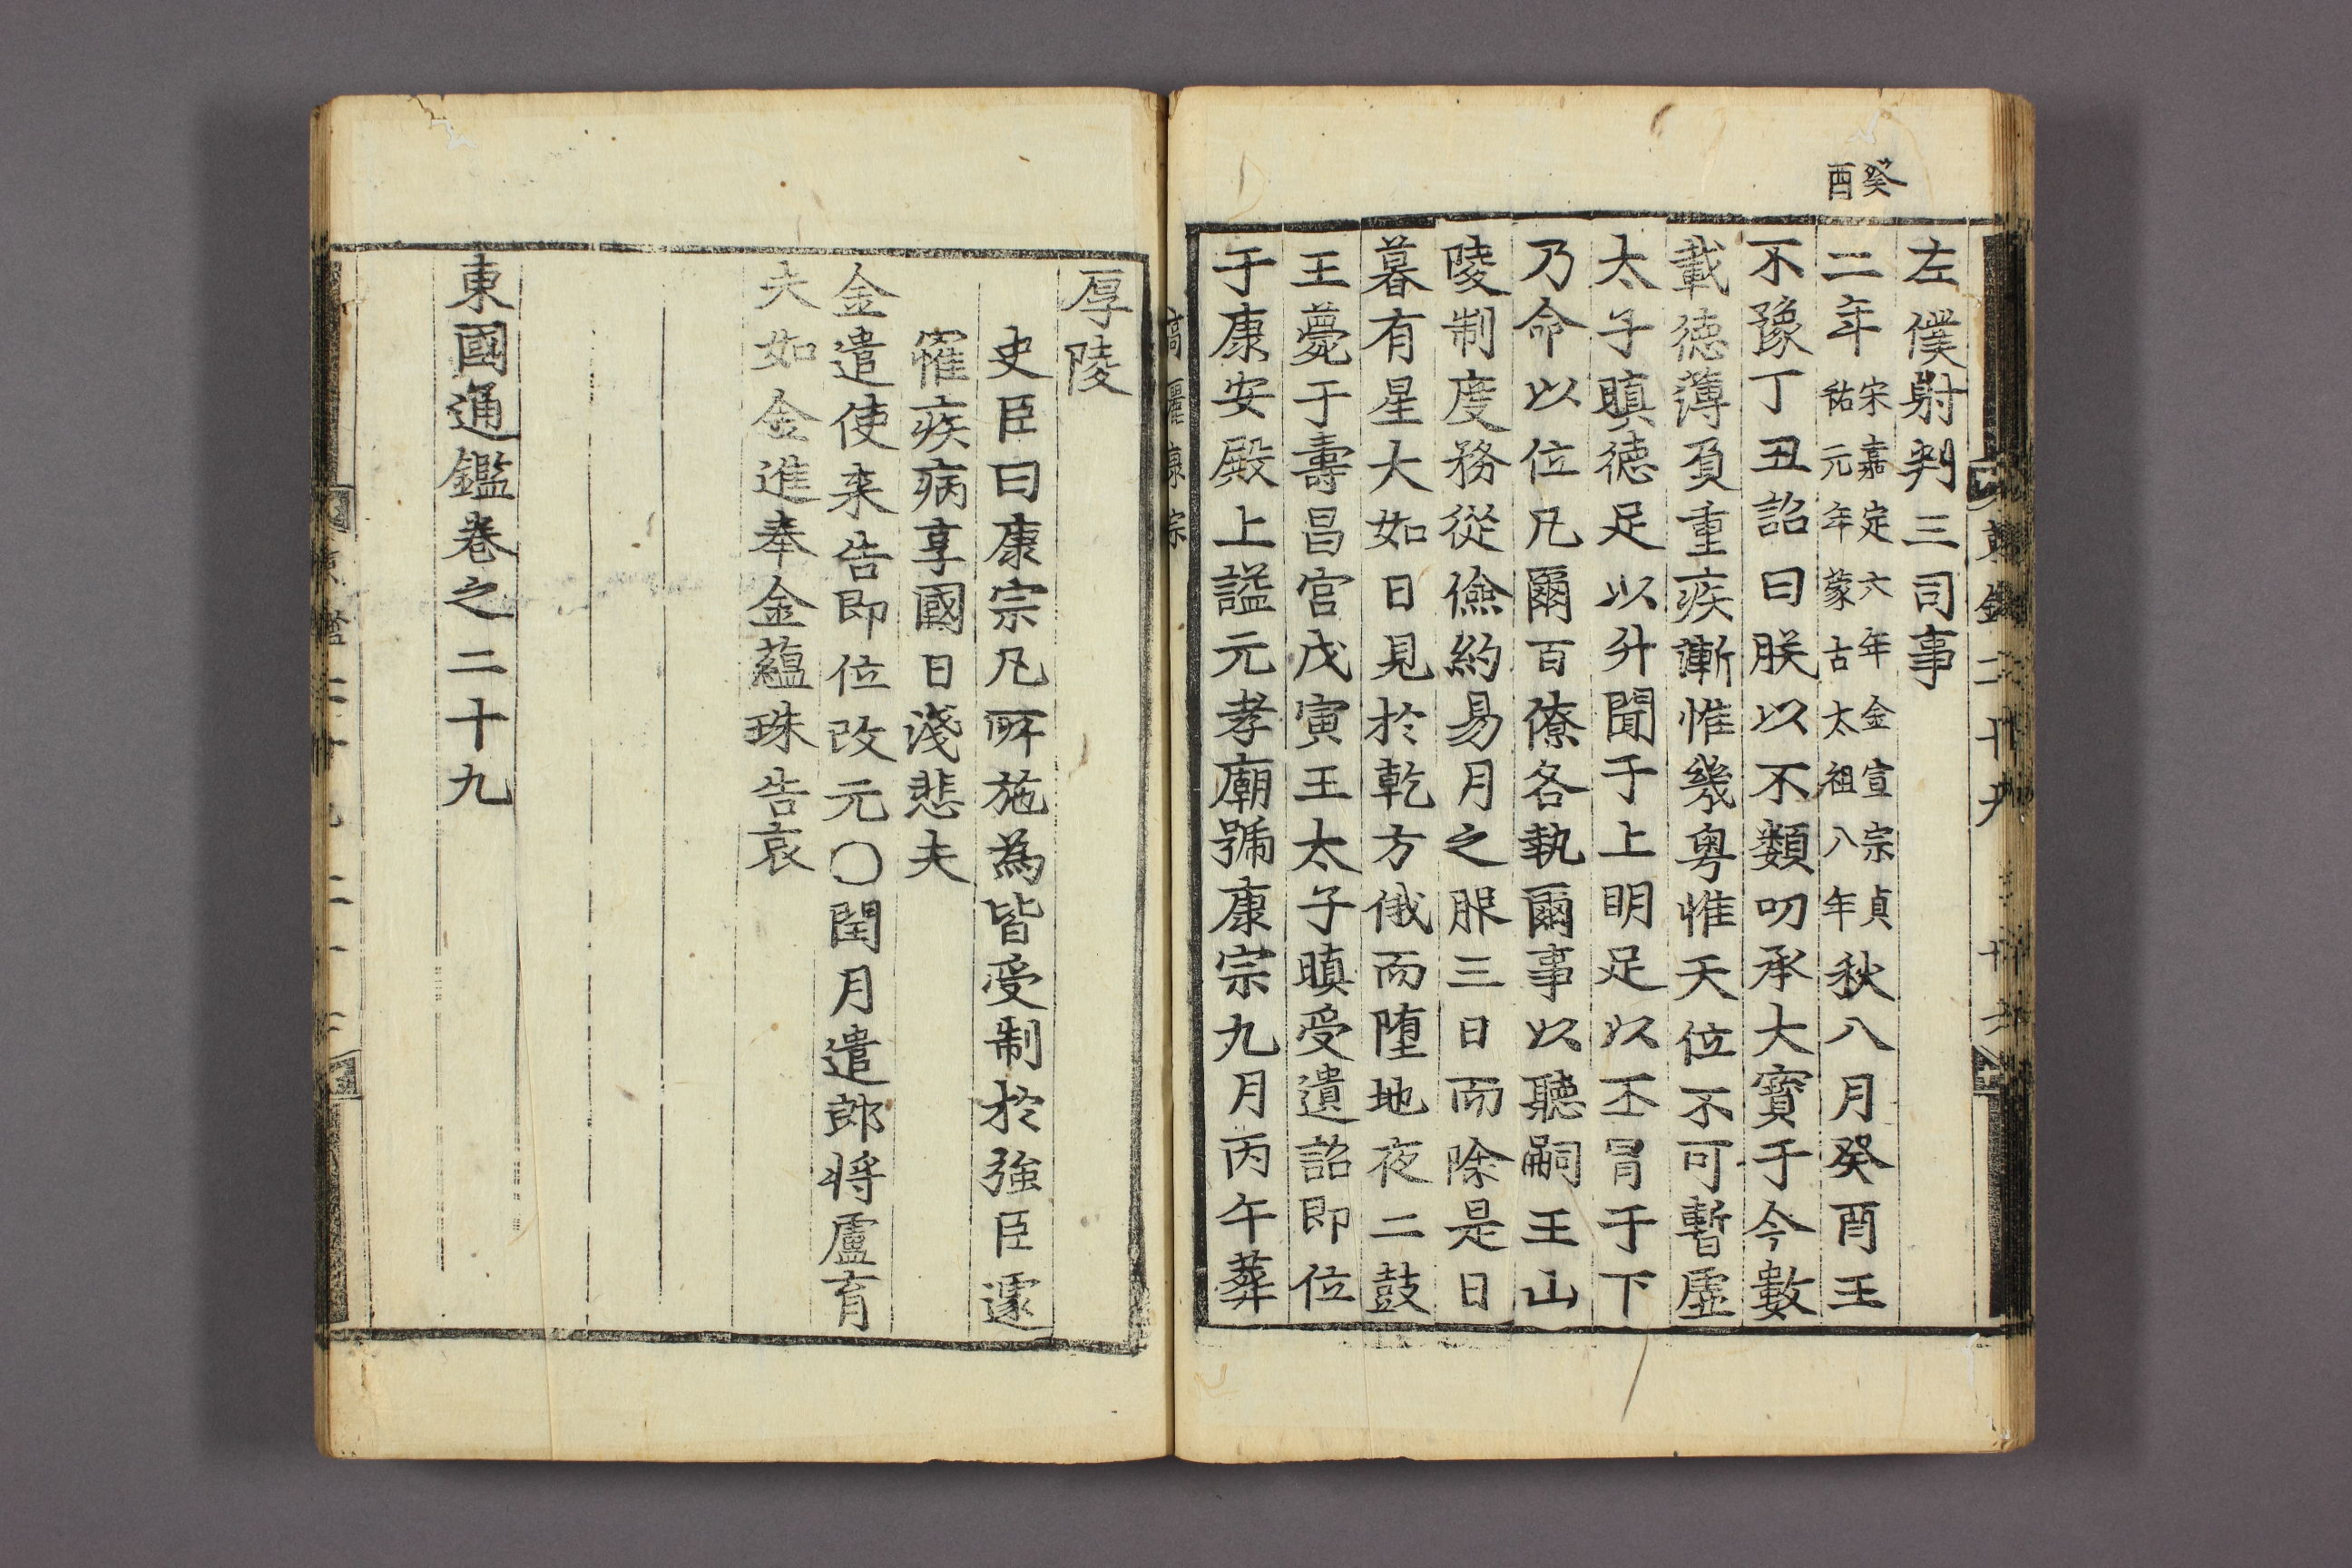 癸酉
左僕射判三司事
二年宋嘉定六年金宣宗貞祐元年蒙古太祖八年秋八月癸酉王
不豫丁丑詔曰朕以不類叨承大寶于今數
載德薄負重疾漸惟幾粤惟天位不可暫虛
太子瞋德足以升聞于上明足以丕冐于下
乃命以位凡爾百僚各執爾事以聽嗣王山
陵制度務從儉約易月之服三日而除是日
暮有星大如日見於乾方俄而墮地夜二鼓
王薨于壽昌宮戊寅王太子瞋受遺詔即位
于康安殿上謚元孝廟號康宗九月丙午葬
高麗康宗
厚陵
史臣曰康宗凡所施為皆受制於強臣遽
罹疾病享國日淺悲夫
金遣使来告即位改元〇閏月遣郎將盧育
夫如金進奉金蘊珠告哀
東國通鑑卷之二十九